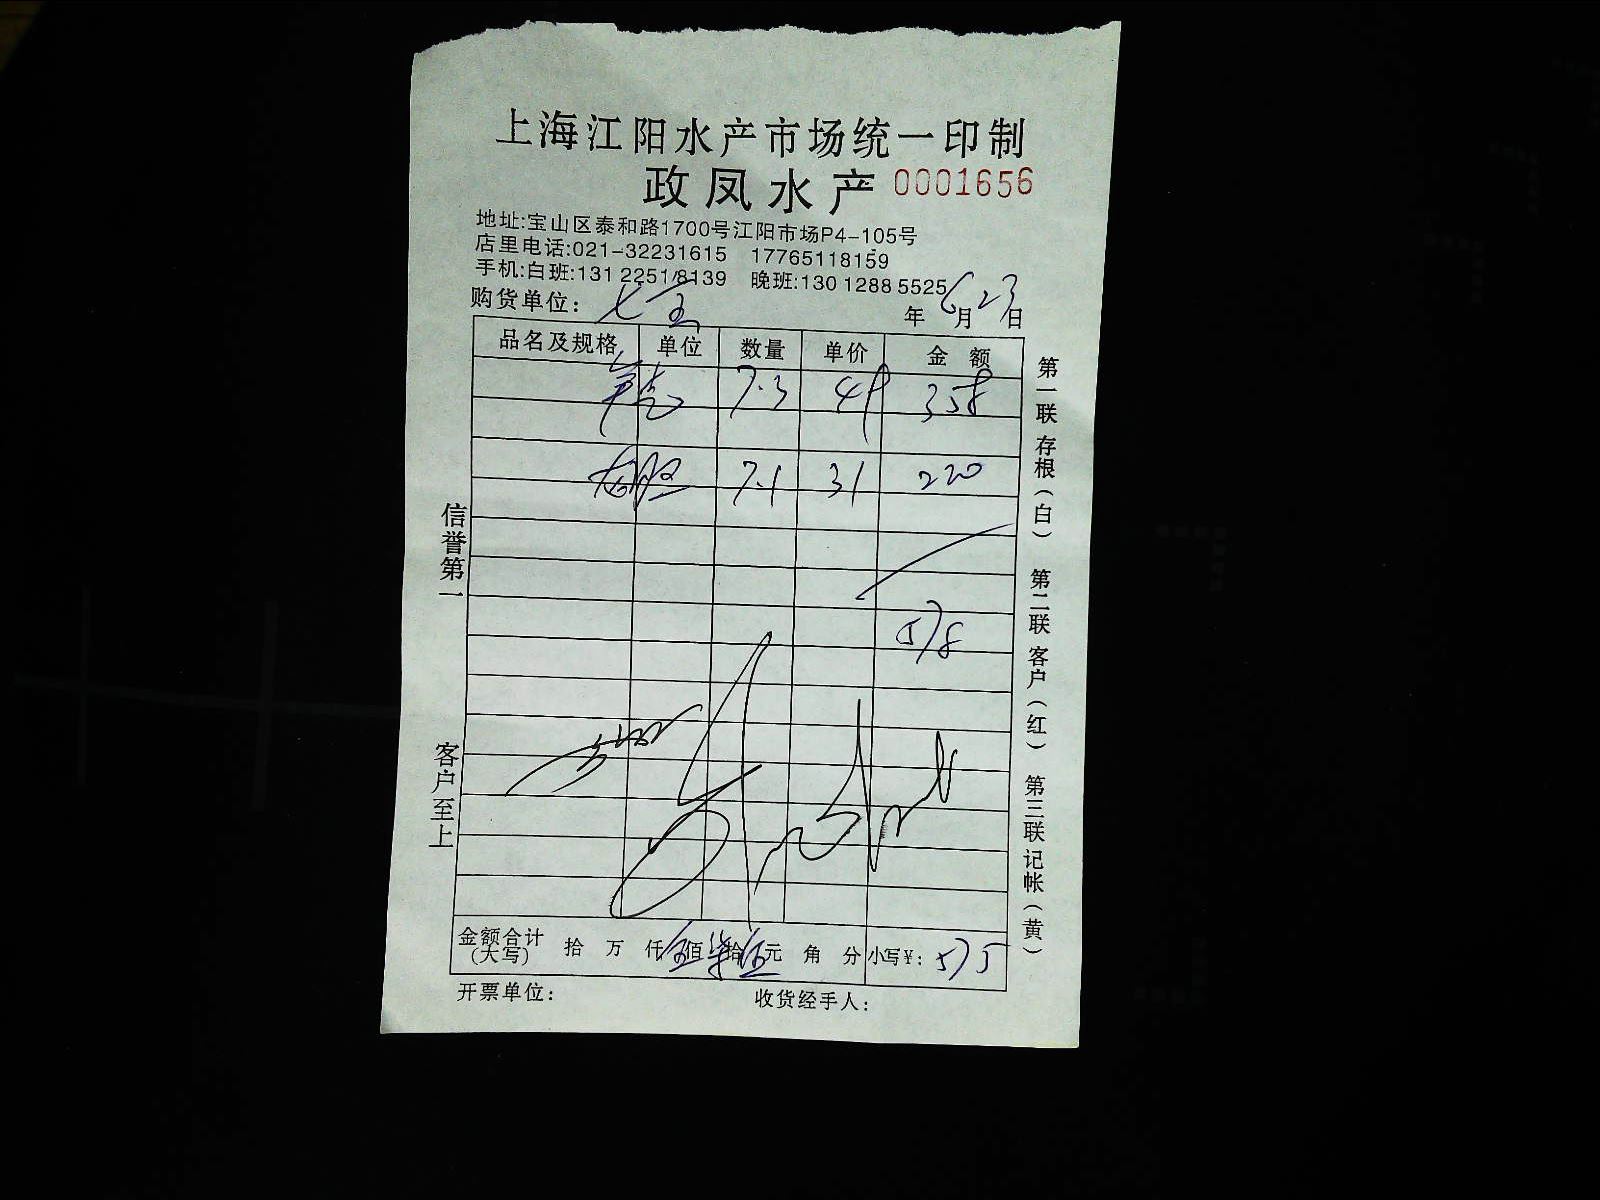 上海江阳水产市场统一印制
政凤水产 0001656
地址:宝山区泰和路1700号江阳市场P4-105号
店里电话:021-32231615 17765118159
手机:白班:131 2251 8139 晚班:130 1288 5525
购货单位: 七宝 年 6月23日
品名及规格 单位 数量 单价 金额
7.3 49 358
7.1 31 220
578
金额合计(大写) 拾 万 仟伍佰柒拾伍元 角 分 小写¥: 575
开票单位: 收货经手人:
信誉第一 客户至上
第一联 存根(白) 第二联 客户(红) 第三联 记帐(黄)